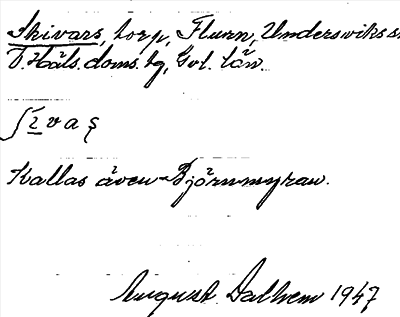 Skivars, torp, Flurn, Undersviks s
V. Häls. doms. lg, Gvl. län.
ʃɪvaʂ
Kallas även Björnmyran.
August Dalhem 1947